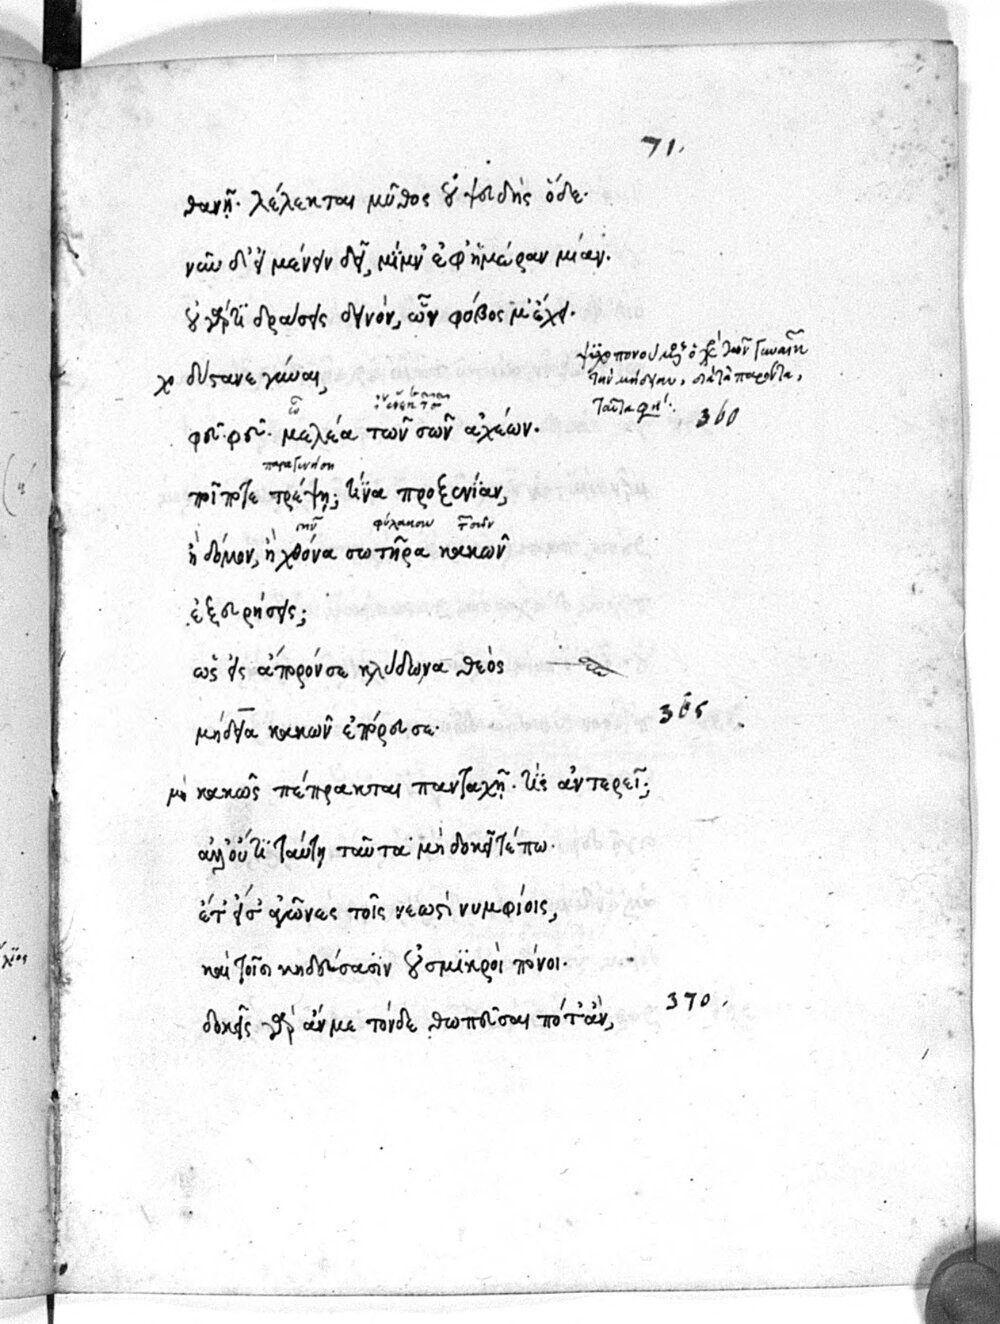 71.
θανῇ· λέλεκται μῦθος ἀψευδὴς ὅδε·
νῦν δ' εἰ μένειν δεῖ, μίμν' ἐφ' ἡμέραν μίαν.
οὐ γάρ τι δράσεις δεινὸν, ὧν φόβος μ' ἔχει.
χο δύστανε γύναι,
φεῦ· φεῦ· μελέα τῶν σῶν ἀχέων.
360
ποῖ ποτε τρέψῃ; τίνα προξενίαν,
ἢ δόμον, ἢ χθόνα σωτῆρα κακῶν
ἐξευρήσεις;
ὡς εἰς ἄπορόν σε κλύδωνα θεὸς
μήδεια κακῶν ἐπόρευσε·
365
μή κακῶς πέπρακται πανταχῇ· τίς ἀντερεῖ;
ἀλλ' οὔτι ταύτῃ ταῦτα μὴ δοκεῖτέ πω.
ἔτ' εἰσ' ἀγῶνες τοῖς νεωστὶ νυμφίοις,
καὶ τοῖσι κηδεύσασιν οὐ σμικροὶ πόνοι.
δοκεῖς γὰρ ἄν με τόνδε θωπεῦσαι ποτ' ἄν,
370.